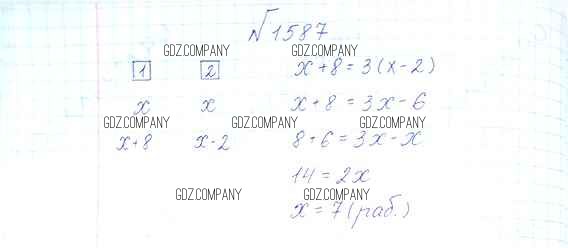 №1587
GDZ.COMPANY GDZ.COMPANY
1 2 x+8=3(x-2)
x x x+8=3x-6
GDZ.COMPANY GDZ.COMPANY GDZ.COMPANY
x+8 x-2 8+6=3x-x
14=2x
GDZ.COMPANY GDZ.COMPANY
x=7(раб.)